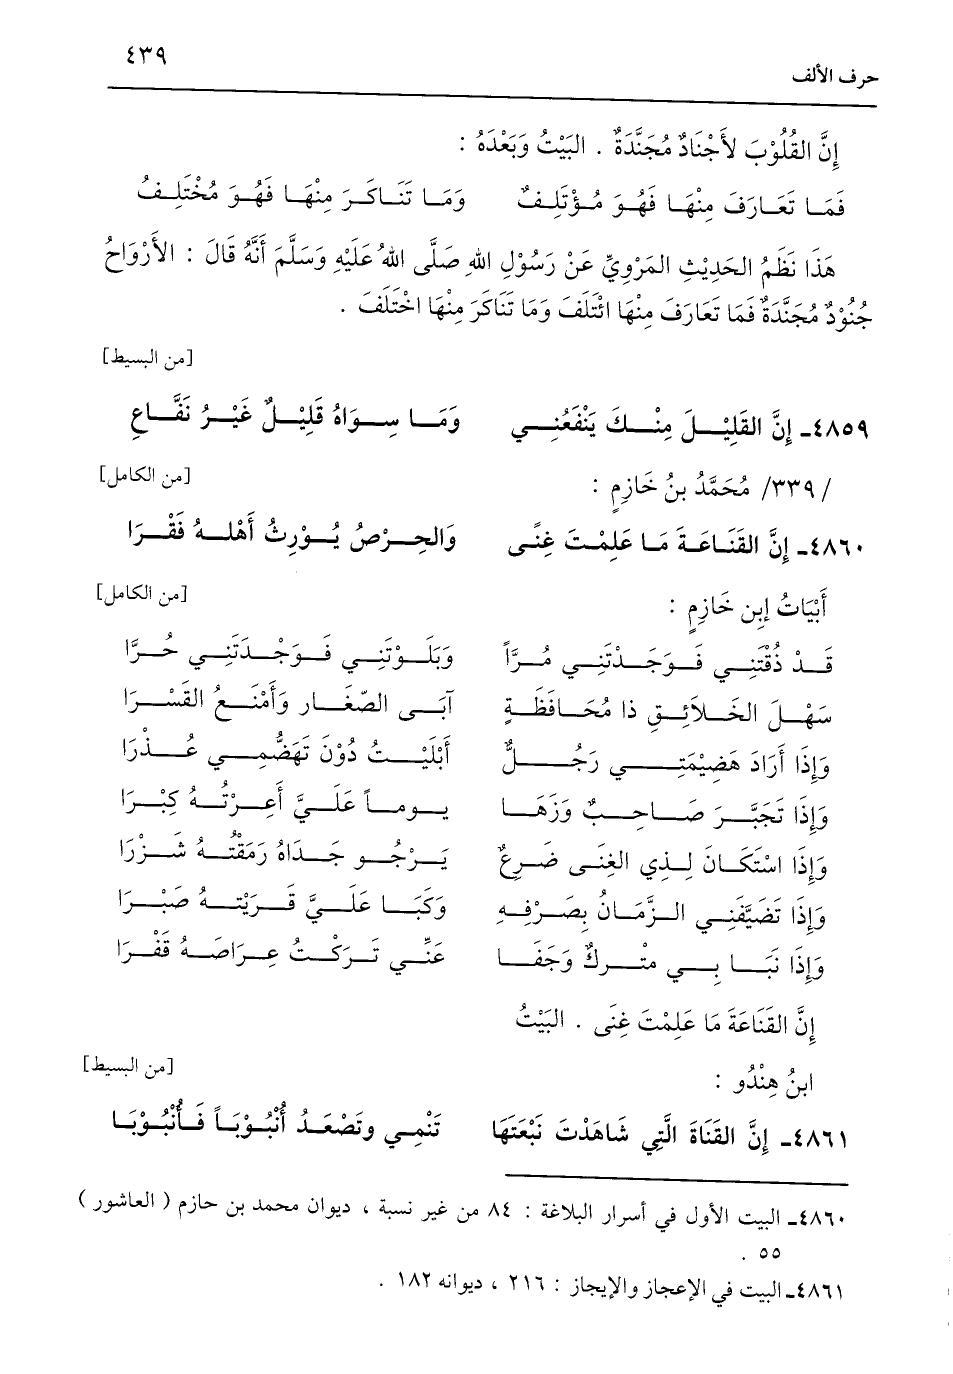 ٤٣٩
حرف الألف
إِنَّ القُلُوْبَ لأَجْنَادٌ مُجَنَّدَةٌ . البَيْتُ وَبَعْدَهُ :
فَمَا تَعَارَفَ مِنْهَا فَهُوَ مُؤْتَلِفٌ وَمَا تَنَاكَرَ مِنْهَا فَهُوَ مُخْتَلِفُ
هَذَا نَظْمُ الحَدِيْثِ المَرْوِيِّ عَنْ رَسُوْلِ اللهِ صَلَّى اللهُ عَلَيْهِ وَسَلَّمَ أَنَّهُ قَالَ : الأَرْوَاحُ
جُنُوْدٌ مُجَنَّدَةٌ فَمَا تَعَارَفَ مِنْهَا ائْتَلَفَ وَمَا تَنَاكَرَ مِنْهَا اخْتَلَفَ .
[من البسيط]
٤٨٥٩ـ إِنَّ القَلِيْلَ مِنْكَ يَنْفَعُنِي وَمَا سِوَاهُ قَلِيْلٌ غَيْرُ نَفَّاعِ
/٣٣٩/ مُحَمَّدُ بنُ خَازِمٍ : [من الكامل]
٤٨٦٠ـ إِنَّ القَنَاعَةَ مَا عَلِمْتَ غِنًى وَالحِرْصُ يُوْرِثُ أَهْلهُ فَقْرَا
أَبْيَاتُ إِبنِ خَازِمٍ : [من الكامل]
قَدْ ذُقْتَنِي فَوَجَدْتَنِي مُرَّاً وَبَلَوْتَنِي فَوَجَدتَنِي حُرَّا
سَهْلَ الخَلاَئِقِ ذَا مُحَافَظَةٍ آبَى الصَّغَار وَأَمْنَعُ القَسْرَا
وَإِذَا أَرَادَ هَضِيْمَتِي رَجُلٌ أَبْلَيْتُ دُوْنَ تَهَضُّمِي عُذْرَا
وَإِذَا تَجَبَّرَ صَاحِبٌ وَزَهَا يوماً عَلَيَّ أَعِرْتُهُ كِبْرَا
وَإِذَا اسْتَكَانَ لِذِي الغِنَى ضَرِعٌ يَرْجُو جَدَاهُ رَمَقْتُهُ شَزْرَا
وَإِذَا تَضَيَّفَنِي الزَّمَانُ بِصَرْفِهِ وَكَبَا عَلَيَّ قَرَيْتهُ صَبْرَا
وَإِذَا نَبَا بِي مَنْزلٌ وَجَفَا عَنِّي تَرَكْتُ عِرَاصَهُ قَفْرَا
إِنَّ القَنَاعَةَ مَا عَلِمْتَ غِنًى . البَيْتُ
ابنُ هِنْدُو : [من البسيط]
٤٨٦١ـ إِنَّ القَنَاةَ الَّتِي شَاهَدْتَ نَبْعَتَهَا تَنْمِي وتَصْعَدُ أُنْبُوْبَاً فَأُنْبُوْبَا
٤٨٦٠ـ البيت الأول في أسرار البلاغة : ٨٤ من غير نسبة ، ديوان محمد بن حازم ( العاشور )
٥٥ .
٤٨٦١ـ البيت في الإعجاز والإيجاز : ٢١٦ ، ديوانه ١٨٢ .